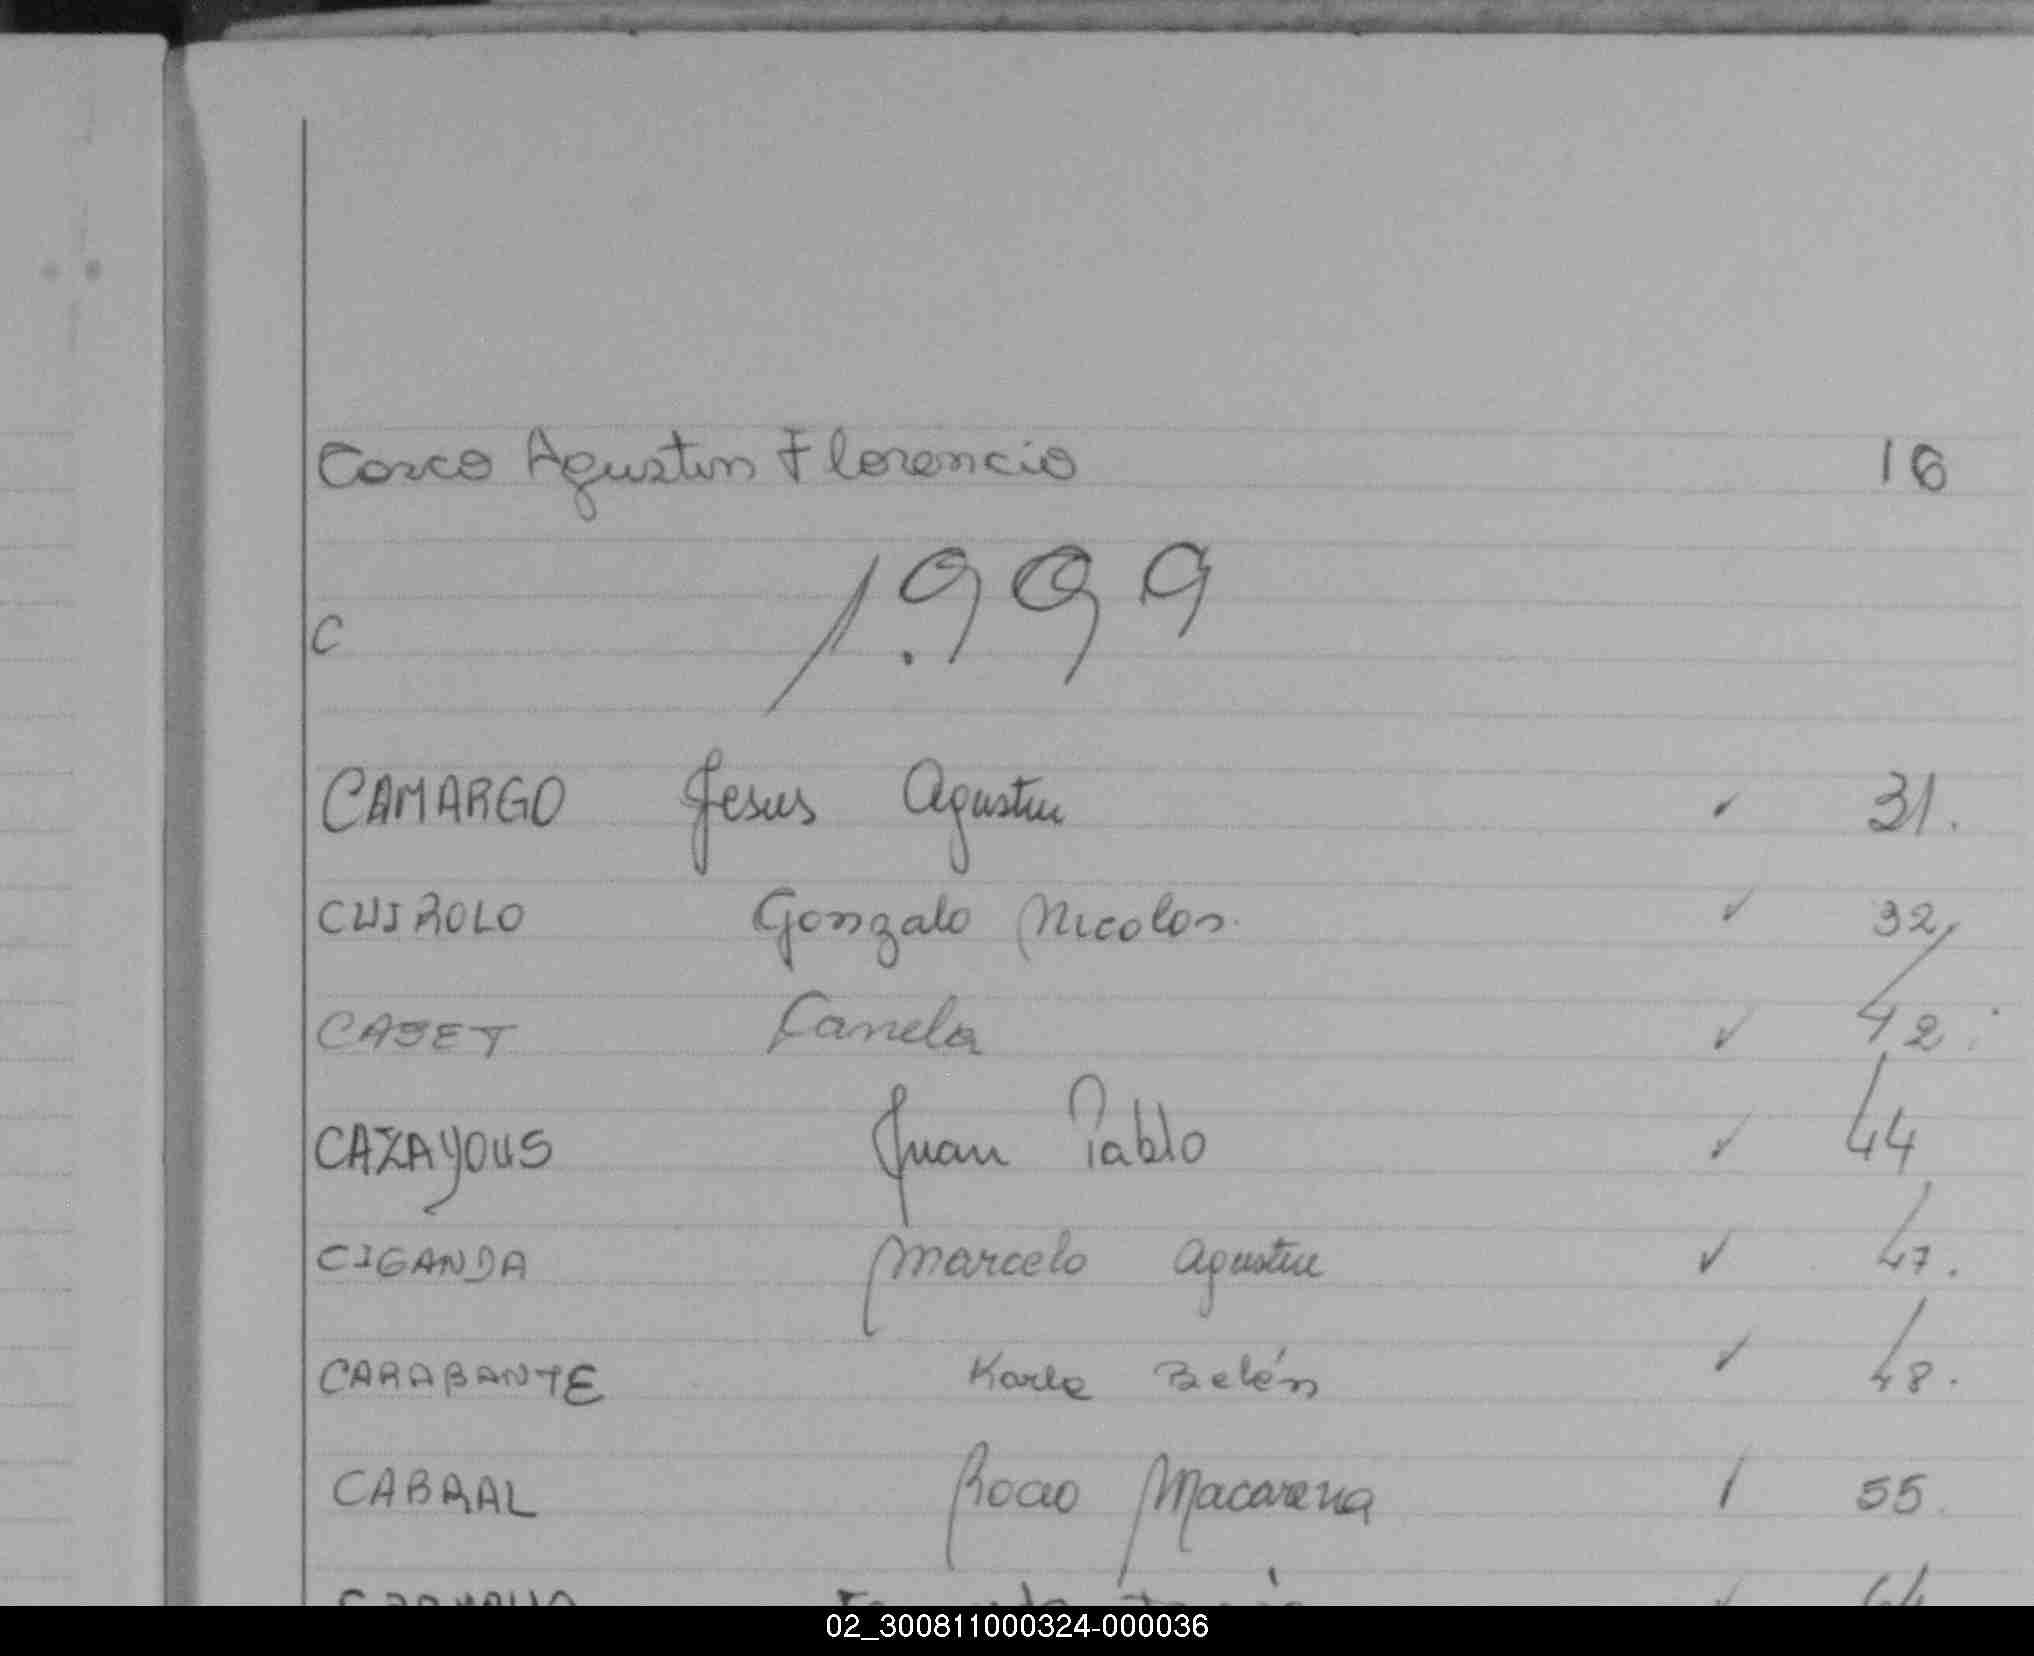 Cosco Agustin Florencio 16
1.999
C
CAMARGO Jesus Agustin ✓ 31.
CUIROLO Gonzalo Nicolas. ✓ 32
CASET Canela ✓ 42.
CAZAYOUS Juan Pablo ✓ 44
CIGANDA Marcelo Agustin ✓ 47.
CARABANTE Karla Belén ✓ 48.
CABRAL Rocio Macarena / 55
02_300811000324-000036